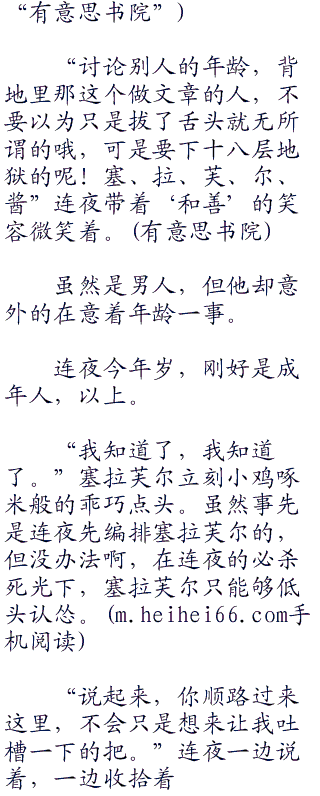 “有意思书院”)
“讨论别人的年龄，背
地里那这个做文章的人，不
要以为只是拔了舌头就无所
谓的哦，可是要下十八层地
狱的呢！塞、拉、芙、尔、
酱”连夜带着‘和善’的笑
容微笑着。(有意思书院)
虽然是男人，但他却意
外的在意着年龄一事。
连夜今年岁，刚好是成
年人，以上。
“我知道了，我知道
了。”塞拉芙尔立刻小鸡啄
米般的乖巧点头。虽然事先
是连夜先编排塞拉芙尔的，
但没办法啊，在连夜的必杀
死光下，塞拉芙尔只能够低
头认怂。(m.heihei66.com手
机阅读)
“说起来，你顺路过来
这里，不会只是想来让我吐
槽一下的把。”连夜一边说
着，一边收拾着